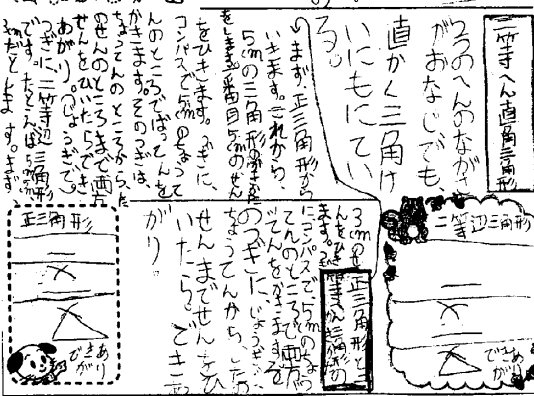 二等へん直角三角形
2つのへんのながさ
がおなじでも、
直かく三角け
いにもにてい
る。
まず、正三角形から
いきます。これから、
5cmの三角形のかきかた
をします。一番目5cmのせん
をひきます。つぎに、
コンパスで5cmのちょうて
んのところでばってんを
かきます。そのつぎは、
ちょうてんのところから、た
のせんのところまで両方
せんをひいたらできあ
あがり。(じょうぎで)。
つぎに二等辺三角形
です。たとえば5cm
3cmだとします。まず、
正三角形と
二等へん三角形の
3cmのせ
んをひき
ます。
にコンパスで、5cmのちょう
てんのところで両方
ばってんをかきます。そ
のつぎに、じょうぎで、
ちょうてんから、したの
せんまでせんをひ
いたら。できあ
がり。
二等辺三角形
できあがり
正三角形
できあがり